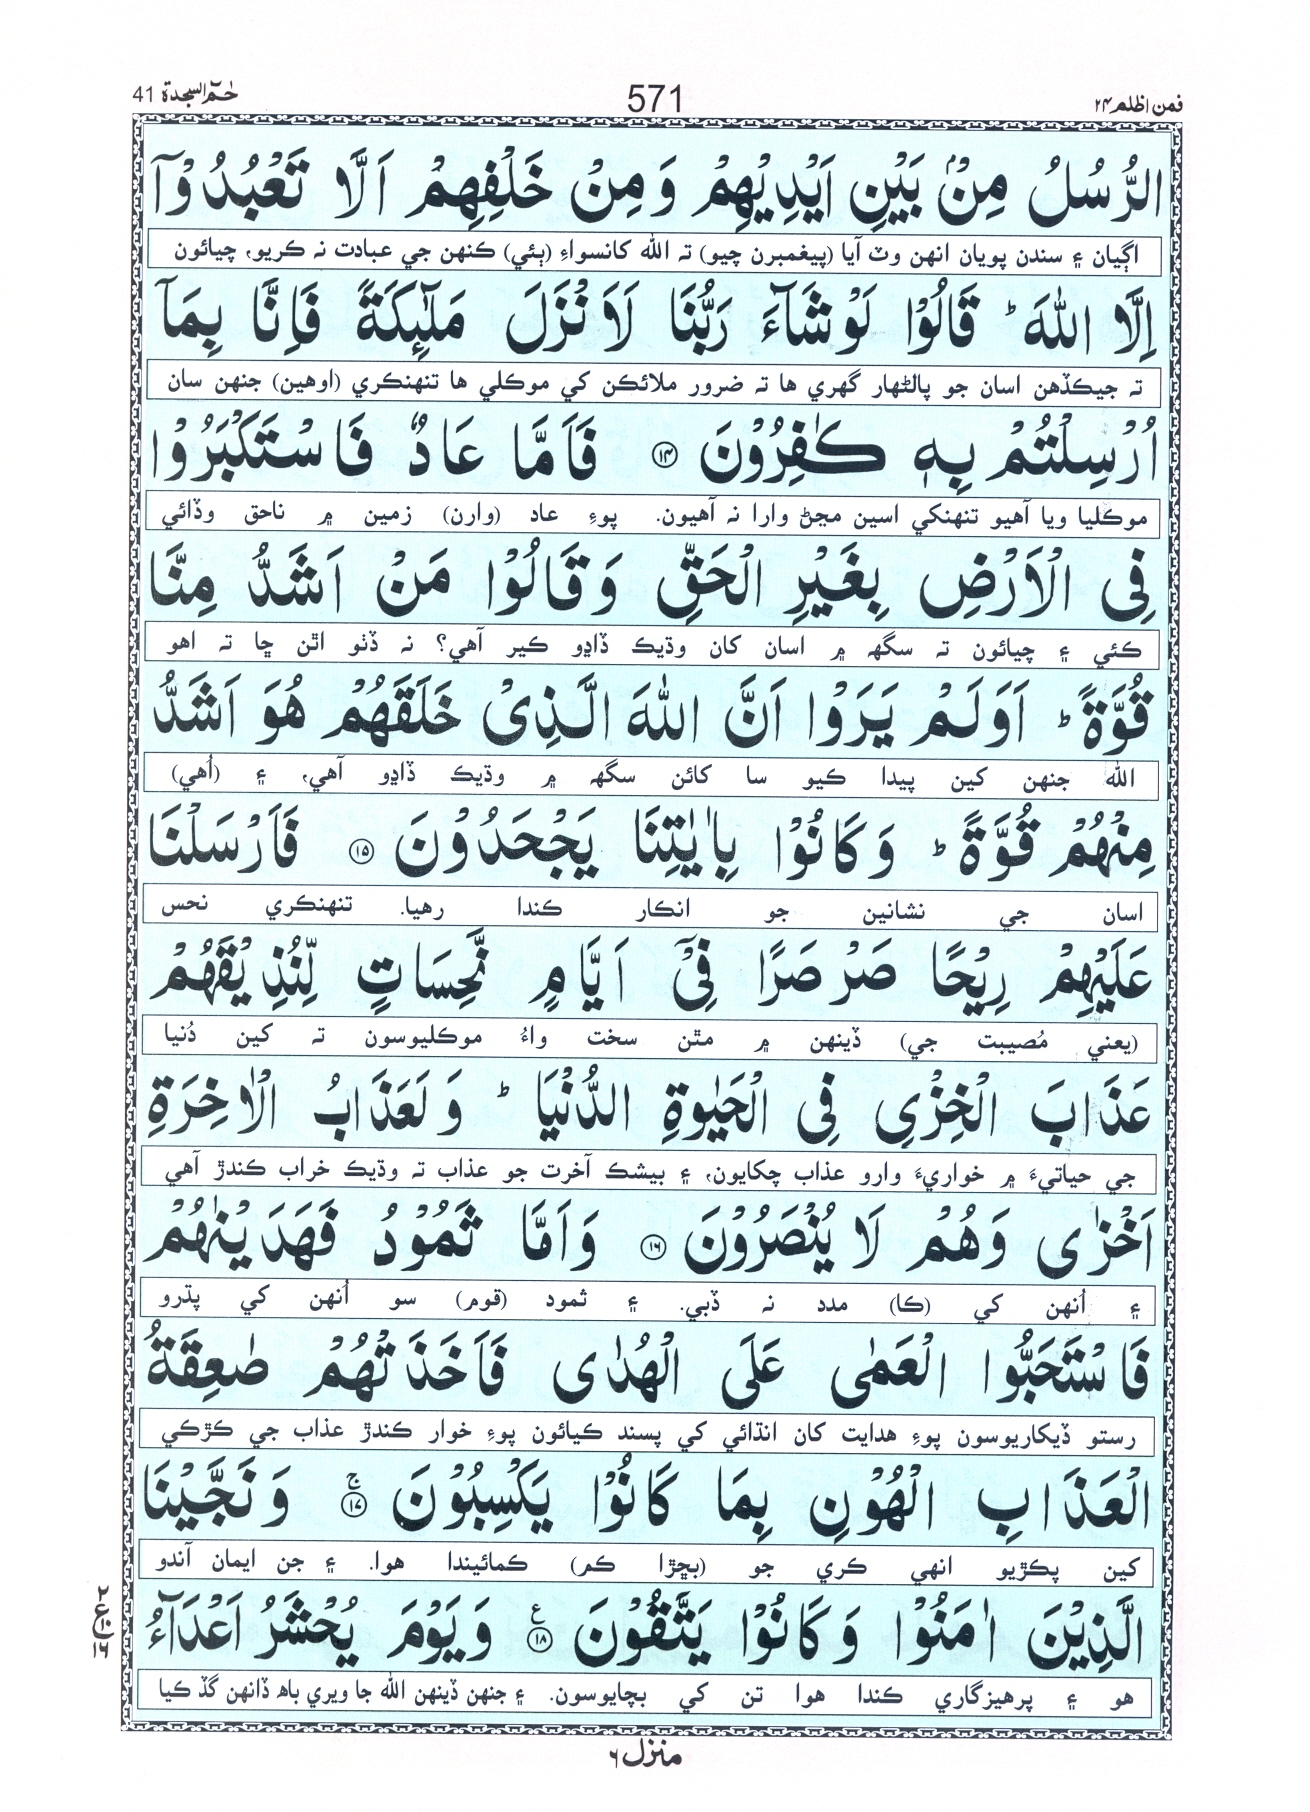 فمن اظلم ۲۴ 571 حٰمٓ السجدة 41
الرُّسُلُ مِنْۢ بَيْنِ اَيْدِيْهِمْ وَمِنْ خَلْفِهِمْ اَلَّا تَعْبُدُوْٓا
اڳيان ۽ سندن پويان انهن وٽ آيا (پيغمبرن چيو) تہ الله کانسواءِ (ٻئي) ڪنهن جي عبادت نہ ڪريو، چيائون
اِلَّا اللّٰهَ ؕ قَالُوْا لَوْ شَآءَ رَبُّنَا لَاَنْزَلَ مَلٰٓئِكَةً فَاِنَّا بِمَآ
تہ جيڪڏهن اسان جو پالڻهار گهري ها تہ ضرور ملائڪن کي موڪلي ها تنهنڪري (اوهين) جنهن سان
اُرْسِلْتُمْ بِهٖ كٰفِرُوْنَ ۝۱۴ فَاَمَّا عَادٌ فَاسْتَكْبَرُوْا
موڪليا ويا آهيو تنهنکي اسين مڃڻ وارا نہ آهيون. پوءِ عاد (وارن) زمين ۾ ناحق وڏائي
فِي الْاَرْضِ بِغَيْرِ الْحَقِّ وَقَالُوْا مَنْ اَشَدُّ مِنَّا
ڪئي ۽ چيائون تہ سگهہ ۾ اسان کان وڌيڪ ڏاڍو ڪير آهي؟ نہ ڏٺو اٿن ڇا تہ اهو
قُوَّةً ؕ اَوَلَمْ يَرَوْا اَنَّ اللّٰهَ الَّذِيْ خَلَقَهُمْ هُوَ اَشَدُّ
الله جنهن کين پيدا ڪيو سا کائن سگهہ ۾ وڌيڪ ڏاڍو آهي، ۽ (اُهي)
مِنْهُمْ قُوَّةً ؕ وَكَانُوْا بِاٰيٰتِنَا يَجْحَدُوْنَ ۝۱۵ فَاَرْسَلْنَا
اسان جي نشانين جو انڪار ڪندا رهيا. تنهنڪري نحس
عَلَيْهِمْ رِيْحًا صَرْصَرًا فِيْٓ اَيَّامٍ نَّحِسَاتٍ لِّنُذِيْقَهُمْ
(يعني مُصيبت جي) ڏينهن ۾ مٿن سخت واءُ موڪليوسون تہ کين دُنيا
عَذَابَ الْخِزْيِ فِي الْحَيٰوةِ الدُّنْيَا ؕ وَلَعَذَابُ الْاٰخِرَةِ
جي حياتيءَ ۾ خواريءَ وارو عذاب چکايون، ۽ بيشڪ آخرت جو عذاب تہ وڌيڪ خراب ڪندڙ آهي
اَخْزٰى وَهُمْ لَا يُنْصَرُوْنَ ۝۱۶ وَاَمَّا ثَمُوْدُ فَهَدَيْنٰهُمْ
۽ اُنهن کي (ڪا) مدد نہ ڏبي. ۽ ثمود (قوم) سو اُنهن کي پڌرو
فَاسْتَحَبُّوا الْعَمٰى عَلَى الْهُدٰى فَاَخَذَتْهُمْ صٰعِقَةُ
رستو ڏيکاريوسون پوءِ هدايت کان انڌائي کي پسند ڪيائون پوءِ خوار ڪندڙ عذاب جي ڪڙڪي
الْعَذَابِ الْهُوْنِ بِمَا كَانُوْا يَكْسِبُوْنَ ۝۱۷ ج وَنَجَّيْنَا
کين پڪڙيو انهي ڪري جو (بڇڙا ڪم) ڪمائيندا هوا. ۽ جن ايمان آندو
الَّذِيْنَ اٰمَنُوْا وَكَانُوْا يَتَّقُوْنَ ۝۱۸ ع وَيَوْمَ يُحْشَرُ اَعْدَآءُ
هو ۽ پرهيزگاري ڪندا هوا تن کي بچايوسون. ۽ جنهن ڏينهن الله جا ويري باهہ ڏانهن گڏ ڪيا
۲ ع ۱۰ ۱۶
منزل ۶